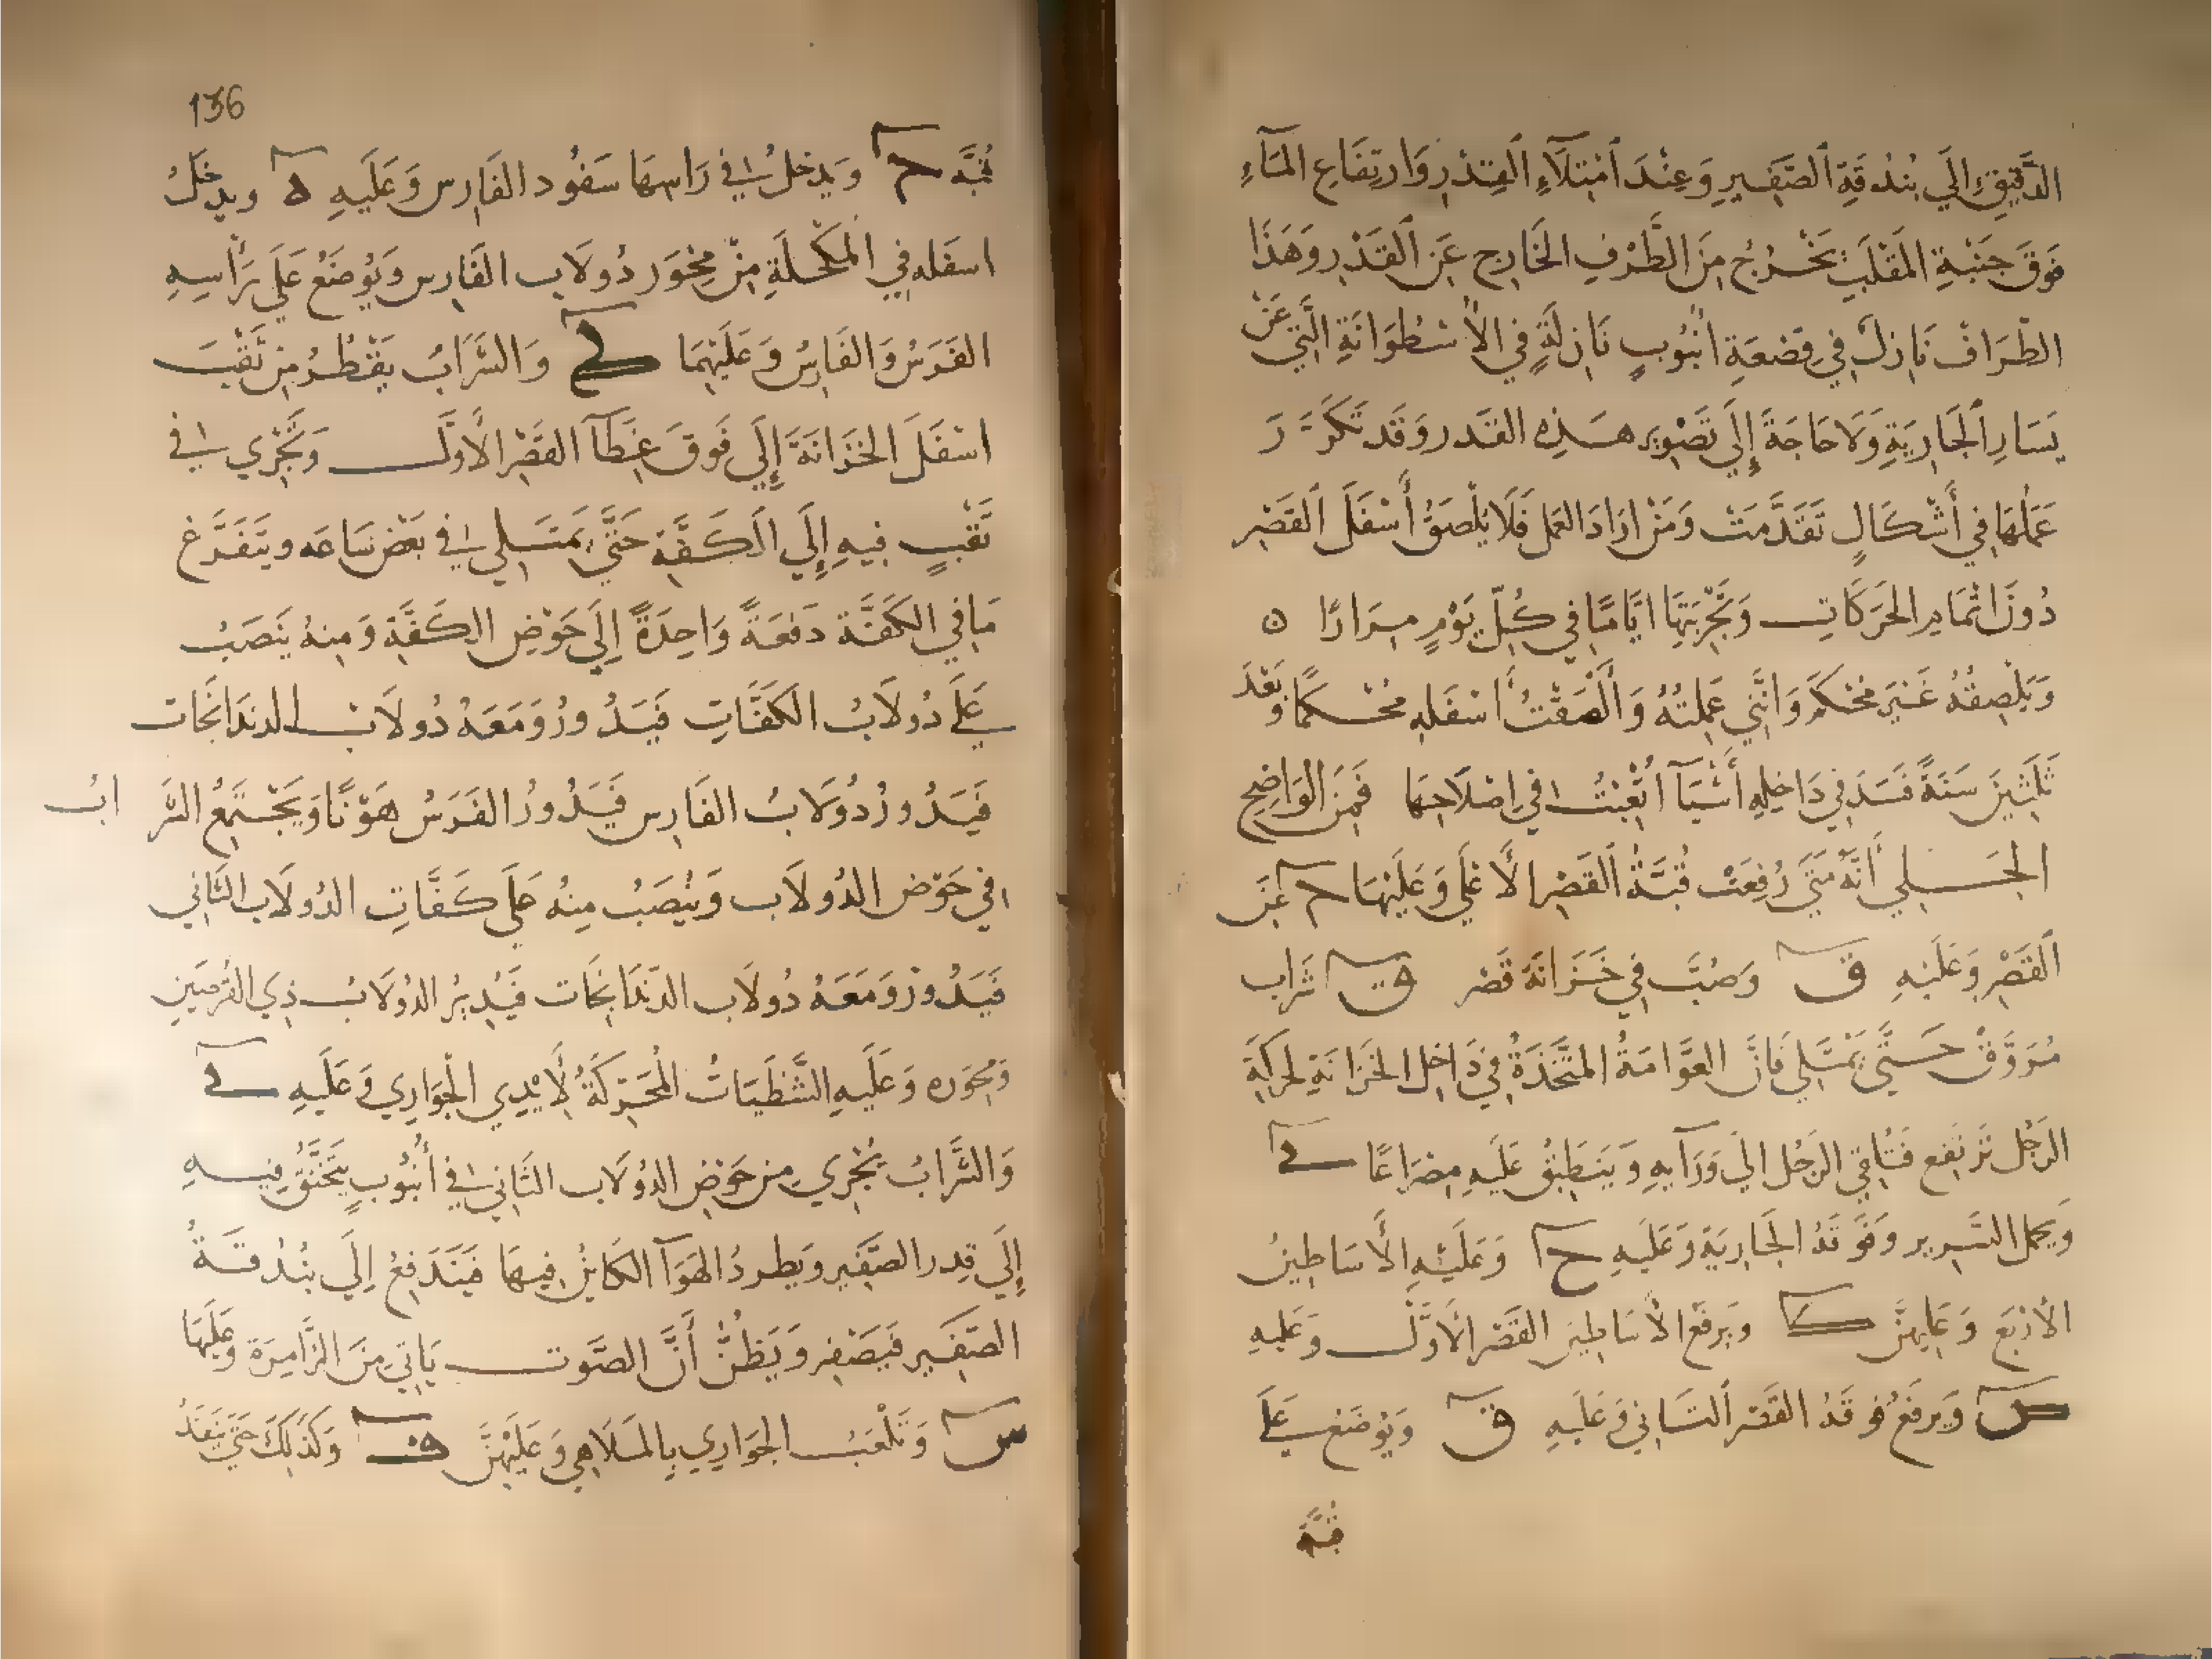 الدَّقِيقِ إِلَى بُنْدُقَةِ الصَّفِيرِ وَعِنْدَ امْتِلَآءِ القِدْرِ وَارتِفَاعِ المَآءِ
فَوقَ جَنْبَةِ المَقْلَبِ يَخْرُجُ مِنَ الطَّرَفِ الخَارِج عَنِ القَدْرِ وَهَذَا
الطَّرَافْ نَازِلٌ فِي قِضعَةِ انْبُوبٍ نَازِلَةٍ فِي الأُسْطُوَانَةِ الَّتِي عَنْ
يَسَارِ الجَارِيَةِ وَلَا حَاجَةَ إِلَى تَصْوِيرِ هَذِهِ القَدر وَقَد تَكَرَّرَ
عَمَلُهَا فِي أَشْكَالٍ تَقَدَّمَتْ وَمَنْ ارَادَ العَمَلَ فَلَا يُلْصِقْ أَسْفَلَ القَصْرِ
دُونَ اتْمَامِ الحَرَكَاتِ وَتَجْرِبَتِهَا ايَّامًا فِي كُلِّ يَوْمٍ مِرَارًا ٥
وَيَلْصِقُهُ غَيْرَ مُحْكَمٍ وَانَّنِي عَمِلتُهُ وَأَلْصَقْتُ أَسْفَلِهِ مُحْكَمًا وَبَعْدَ
ثَلثِينَ سَنَةً فَسَدَ فِي دَاخِلِهِ أَشْيَآ اُتْعِبْتُ فِي اِصْلَاحِهَا فَمِنَ الوَاضِحِ
الجَلِي أَنَّهُ مَتَى رُفِعَتْ قُبَّةُ القَصْرِ الأَعْلَى وَعَلَيْهَا م عَنِ
القَصْرِ وَعَلَيْهِ ق وَصُبَّ فِي خَزَانَةِ قَصْرِ ق شَرَاب
مُرَوَّقْ حَتَّى يَمْتَلِي فَانَّ العَوَّامَةُ المتَّخَذَةُ فِي دَاخِلِ الخَزَانَةِ لحَرَكَةِ
الرَجُل تَرتَفِع فَتُلقِي الرَجُل الَى وَرَآيهِ وَيَنطَبِقُ عَلَيهِ مِصْرَاعَا
وَيحمل السَّرِير وَفَوقَهُ الجَارِيَة وَعَلَيهِ ح وَعَلَيْهِ الأَسَاطِينُ
الأَرْبَع وَعَلَيهِنَّ ك وَيَرفَع الأَسَاطِينَ القَصْرَ الأَوَّلَ وَعَليهِ
س وَيَرفَعُ فَوقَهُ القَصْرَ الثَانِي وَعَلَيهِ ق وَيُوضَعُ عَلَى
قبَّة
136
قُبَّه م وَيدخلُ فِي رَاسِهَا سَفُّود الفَارِس وَعَلَيهِ ه ويدخلُ
اسفَله فِي المكْحَلَةِ مِنْ مِحْوَر دُولَاب الفَارِس وَيُوضَعُ عَلَى رَأْسِهِ
الفَرَسُ وَالفَارِسُ وَعَلَيْهِمَا وَالشَّرَابُ يَقْطُرُ مِن ثَقْبَ
اسْفَلَ الخَزَانَة إِلَى فَوقَ غِطَآ القَصْرِ الأَوَّل وَيَجْرِي فِي
ثَقْبٍ فِيهِ إِلَى الكَفَّة حَتَّى يَمتَلِي فِي بَعْضِ سَاعَه وَيتَفَرَّغ
مَا فِي الكَفَّة دَفعَةً وَاحِدَةً إِلَى حَوْضِ الكَفَّة وَمِنهُ يَنصَبُ
عَلَى دُولَابُ الكَفَّاتِ فَيَدُورُ وَمَعَهُ دُولَابْ الدندَانجَات
فَيَدُورُ دُولَابُ الفَارِس فَيَدُورُ الفَرَسُ هَوْنًا وَيَجْتَمِعُ الشَّرَابُ
فِي حَوْض الدُولَاب وَيُنصَبُ مِنهُ عَلَى كَفَّاتِ الدُولَاب الثَّانِي
فَيَدُورُ وَمَعَهُ دُولَاب الدَّندَانجَات فَيُدِيرُ الدُولَابُ ذِي القُرصَينِ
وَمِحْوَره وَعَلَيهِ الشَّظِيَّاتُ المُحَرِّكَةُ لأَيْدِي الجَوَارِي وَعَلَيهِ
وَالشَّرَابُ يَجْرِي مِن حَوْضِ الدُولَاب الثَّانِي فِي أُنبُوبٍ يَتَخَنَّقُ فِيهِ
إِلَى قِدر الصَّفِير وَيطردُ الهَوَآ الكَائِنُ فِيهَا فَيَندَفِعُ إِلَى بُندُقَةُ
الصَّفِير فَيَصْفِر وَيَظُنُّ أَنَّ الصَّوت يَاتِي مِنَ الزَّامِرَة وَعَلَيهَا
س وَتَلْعَبُ الجَوَارِي بِالمَلَاهِي وَعَلَيْهِنَّ ف وَكَذَلِكَ حَتَّى يَنفَدَ